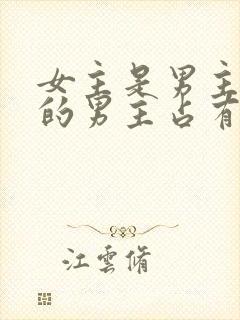 女主是男主
的男主占有
江雲脩